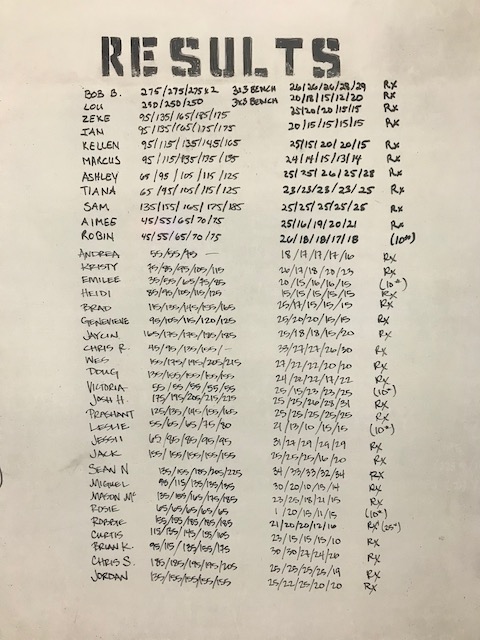 RESULTS
BOB B. 275/275/275x2 3x3 BENCH 26/26/26/28/29 RX
LOU 250/250/250 3x3 BENCH 20/18/15/12/20 RX
ZEKE 95/135/165/185/175 25/20/20/15/15 RX
IAN 95/135/165/175/175 20/15/15/15/15 RX
KELLEN 95/115/135/145/165 25/15/20/20/15 RX
MARCUS 95/115/135/175/185 24/14/15/13/14 RX
ASHLEY 65/95/105/115/125 25/25/26/25/28 RX
TIANA 65/95/105/115/125 23/23/23/23/25 RX
SAM 135/155/165/175/185 25/25/25/25/25 RX
AIMEE 45/55/65/70/75 25/16/19/20/21 RX
ROBIN 45/55/65/70/75 26/18/18/17/18
ANDREA 55/55/45 — 18/17/17/17/16 RX
KRISTY 75/85/95/105/115 26/17/18/20/23 RX
EMILEE 35/55/65/75/85 20/15/16/16/15
HEIDI 85/95/105/115/125 15/15/15/15/15 RX
BRAD 115/135/145/155/165 25/17/15/15/15 RX
GENEVIEVE 95/105/115/120/125 25/20/20/15/15 RX
JAYLIN 165/175/175/185/185 25/18/18/15/20 RX
CHRIS R. 95/95/135/155/— 33/27/27/26/30 RX
WES 155/175/195/205/215 27/22/22/20/20 RX
DOUG 135/155/155/155/155 24/20/22/17/22 RX
VICTORIA 55/55/55/55/55 25/15/23/23/25
JOSH H. 175/195/205/215/225 25/25/26/28/31 RX
PRASHANT 125/135/145/155/165 25/25/25/25/25 RX
LESLIE 55/65/65/75/80 21/13/10/15/15
JESSII 65/95/95/95/95 31/27/29/29/29 RX
JACK 155/155/155/155/155 25/25/25/16/20 RX
SEAN N 135/155/185/205/225 34/33/33/32/34 RX
MIGUEL 95/115/135/135/155 30/20/10/15/14 RX
MASON Mc 135/155/165/175/185 23/25/18/21/15 RX
ROSIE 65/65/65/65/65 1/20/15/11/15
ROBBIE 155/155/185/185/185 21/20/20/12/16 RX
CURTIS 115/135/145/155/165 23/15/15/15/10 RX
BRIAN K. 95/115/135/155/175 30/30/27/24/26 RX
CHRIS S. 185/185/195/195/205 25/25/25/25/19 RX
JORDAN 135/155/155/155/155 25/22/25/20/20 RX